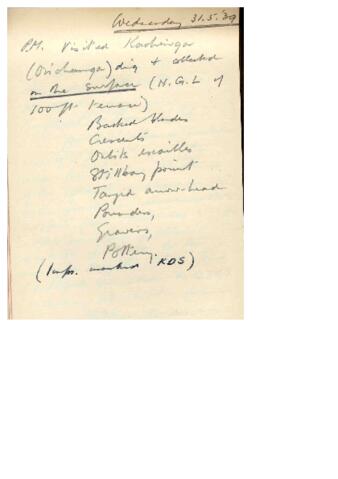 Wednesday 31.5.39
P.M. Visited Kachinga
( ) dig & collected
on the surface (N.G.L of
100 ft. terrace)
Backed blades
Crescents
Outils écaillés
Stillbay point
Tanged arrow-head
Pounders,
Gravers,
Pottery.
( marked KDS)